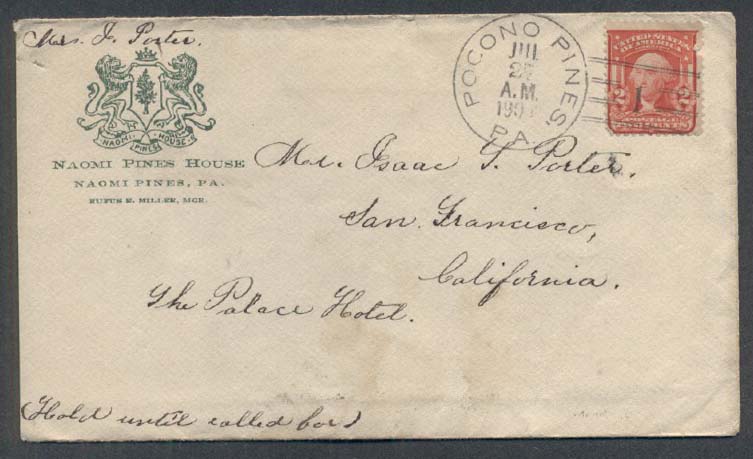 Mrs. I. Porter.
NAOMI PINES HOUSE
NAOMI PINES HOUSE
NAOMI PINES, PA.
RUFUS E. MILLER, MGR.
POCONO PINES
JUL
A.M.
PA.
UNITED STATES
OF AMERICA
2 1 2
Mr. Isaac S. Porter.
San Francisco,
California.
The Palace Hotel.
(Hold until called for)